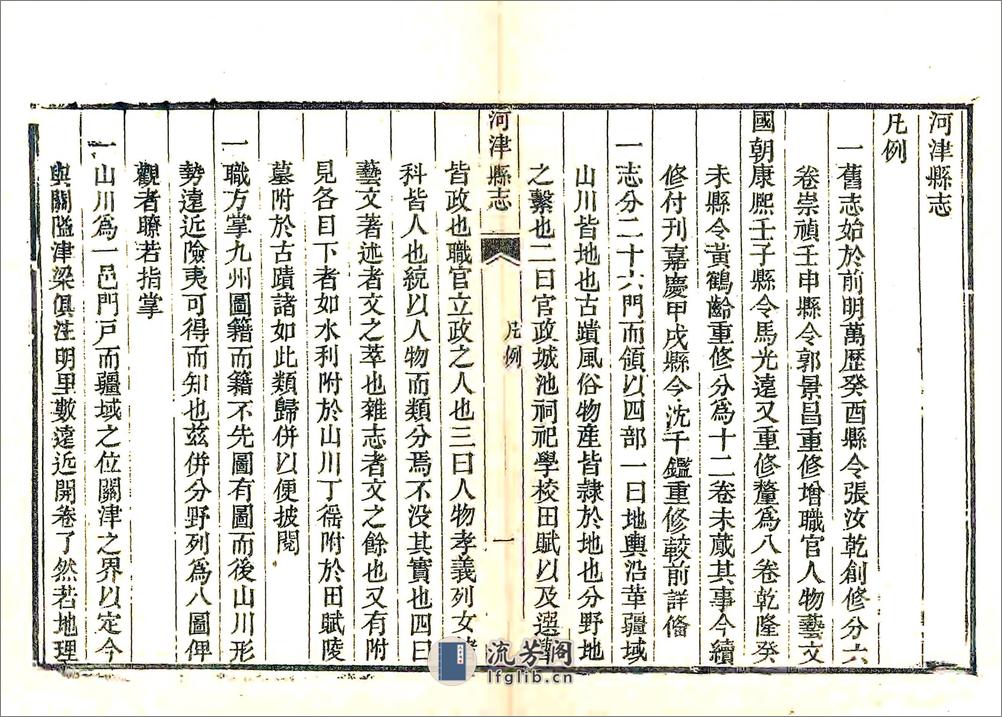 河津縣志
凡例
一舊志始於前明萬歷癸酉縣令張汝乾創修分六
卷崇禎壬申縣令郭景昌重修增職官人物藝文
國朝康熙壬子縣令馬光遠又重修釐為八卷乾隆癸
未縣令黃鶴齡重修分為十二卷未蕆其事今續
修付刊嘉慶甲戌縣令沈千鑑重修較前詳俻
一志分二十六門而領以四部一曰地輿沿革疆域
山川皆地也古蹟風俗物産皆隷於地也分野地
之繫也二曰官政城池祠祀學校田賦以及選舉
河津縣志
凡例
一
皆政也職官立政之人也三曰人物孝義列女
科皆人也統以人物而類分焉不没其實也四曰
藝文著述者文之萃也雜志者文之餘也又有附
見各目下者如水利附於山川丁徭附於田賦陵
墓附於古蹟諸如此類歸併以便披閲
一職方掌九州圖籍而籍不先圖有圖而後山川形
勢遠近險夷可得而知也兹併分野列為八圖俾
觀者瞭若指掌
一山川為一邑門戸而疆域之位關津之界以定今
與關隘津梁俱注明里數遠近開卷了然若地理
流芳阁
lfglib.cn